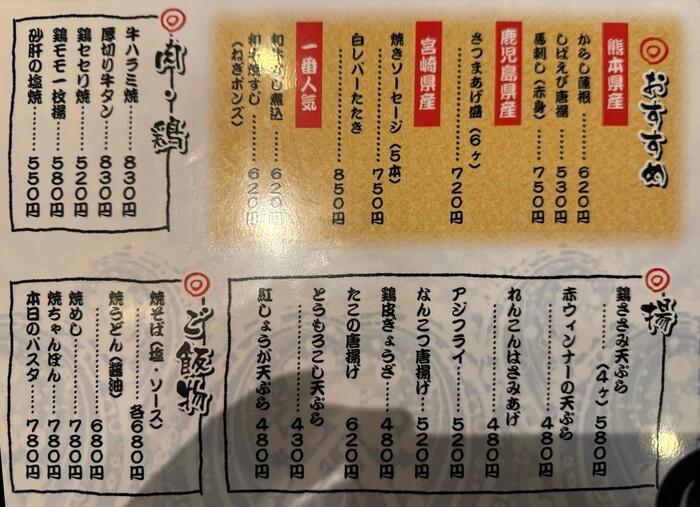 おすすめ
熊本県産
からし蓮根……620円
しばえび唐揚……530円
馬刺し（赤身）……750円
鹿児島県産
さつまあげ盛（6ヶ）
……720円
宮崎県産
焼きソーセージ（5本）
……750円
白レバーたたき
……850円
一番人気
煮込……620円
和牛焼すじ……620円
（ねぎポンズ）
肉・鶏
牛ハラミ焼……830円
厚切り牛タン……830円
鶏セセリ焼……520円
鶏モモ一枚揚……580円
砂肝の塩焼……550円
揚
鶏ささみ天ぷら
（4ヶ）……580円
赤ウィンナーの天ぷら
……480円
れんこんはさみあげ
……480円
アジフライ……520円
なんこつ唐揚げ……520円
鶏皮ぎょうざ……480円
たこの唐揚げ……620円
とうもろこし天ぷら
……430円
紅しょうが天ぷら……480円
ご飯物
焼そば（塩・ソース）
……各680円
焼うどん（醤油）
……680円
焼めし……780円
焼ちゃんぽん……780円
本日のパスタ……780円